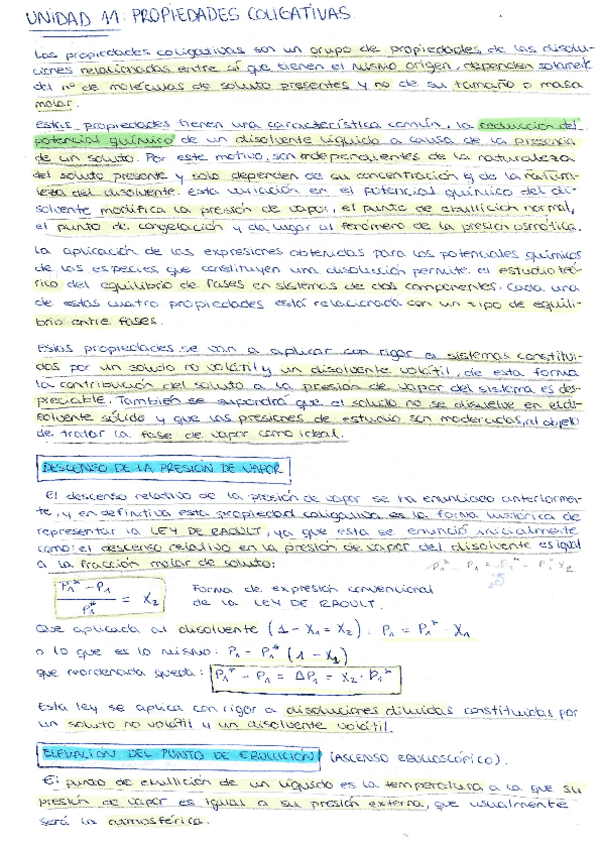 UNIDAD 11: PROPIEDADES COLIGATIVAS.
Las propiedades coligativas son un grupo de propiedades de las disolu-
ciones relacionadas entre sí que tienen el mismo origen, dependen solamente
del nº de moléculas de soluto presentes y no de su tamaño o masa
molar.
Estas propiedades tienen una característica común, la reducción del
potencial químico de un disolvente líquido a causa de la presencia
de un soluto. Por este motivo, son independientes de la naturaleza
del soluto presente y solo dependen de su concentración y de la natura-
leza del disolvente. Esta variación en el potencial químico del di-
solvente modifica la presión de vapor, el punto de ebullición normal,
el punto de congelación y da lugar al fenómeno de la presión osmótica.
La aplicación de las expresiones obtenidas para los potenciales químicos
de las especies que constituyen una disolución permite el estudio teó-
rico del equilibrio de fases en sistemas de dos componentes. Cada una
de estas cuatro propiedades está relacionada con un tipo de equili-
brio entre fases.
Estas propiedades se van a aplicar con rigor a sistemas constitui-
dos por un soluto no volátil y un disolvente volátil, de esta forma
la contribución del soluto a la presión de vapor del sistema es des-
preciable. También se supondrá que el soluto no se disuelve en el di-
solvente sólido y que las presiones de estudio son moderadas, al objeto
de tratar la fase de vapor como ideal.
DESCENSO DE LA PRESIÓN DE VAPOR
El descenso relativo de la presión de vapor se ha enunciado anteriormen-
te, y en definitiva esta propiedad coligativa es la forma histórica de
representar la LEY DE RAOULT, ya que esta se enunció inicialmente
como: el descenso relativo en la presión de vapor del disolvente es igual
a la fracción molar de soluto:
P₁* - P₁ = P₁* x₂
(P₁* - P₁) / P₁* = X₂ Forma de expresión convencional
de la LEY DE RAOULT.
Que aplicada al disolvente (1 - X₁ = X₂) : P₁ = P₁* · X₁
o lo que es lo mismo: P₁ - P₁* (1 - X₂)
que reordenada queda: P₁* - P₁ = ΔP₁ = X₂ · P₁*
Esta ley se aplica con rigor a disoluciones diluidas constituidas por
un soluto no volátil y un disolvente volátil.
ELEVACIÓN DEL PUNTO DE EBULLICIÓN (ASCENSO EBULLOSCÓPICO).
El punto de ebullición de un líquido es la temperatura a la que su
presión de vapor es igual a su presión externa, que usualmente
será la atmosférica.